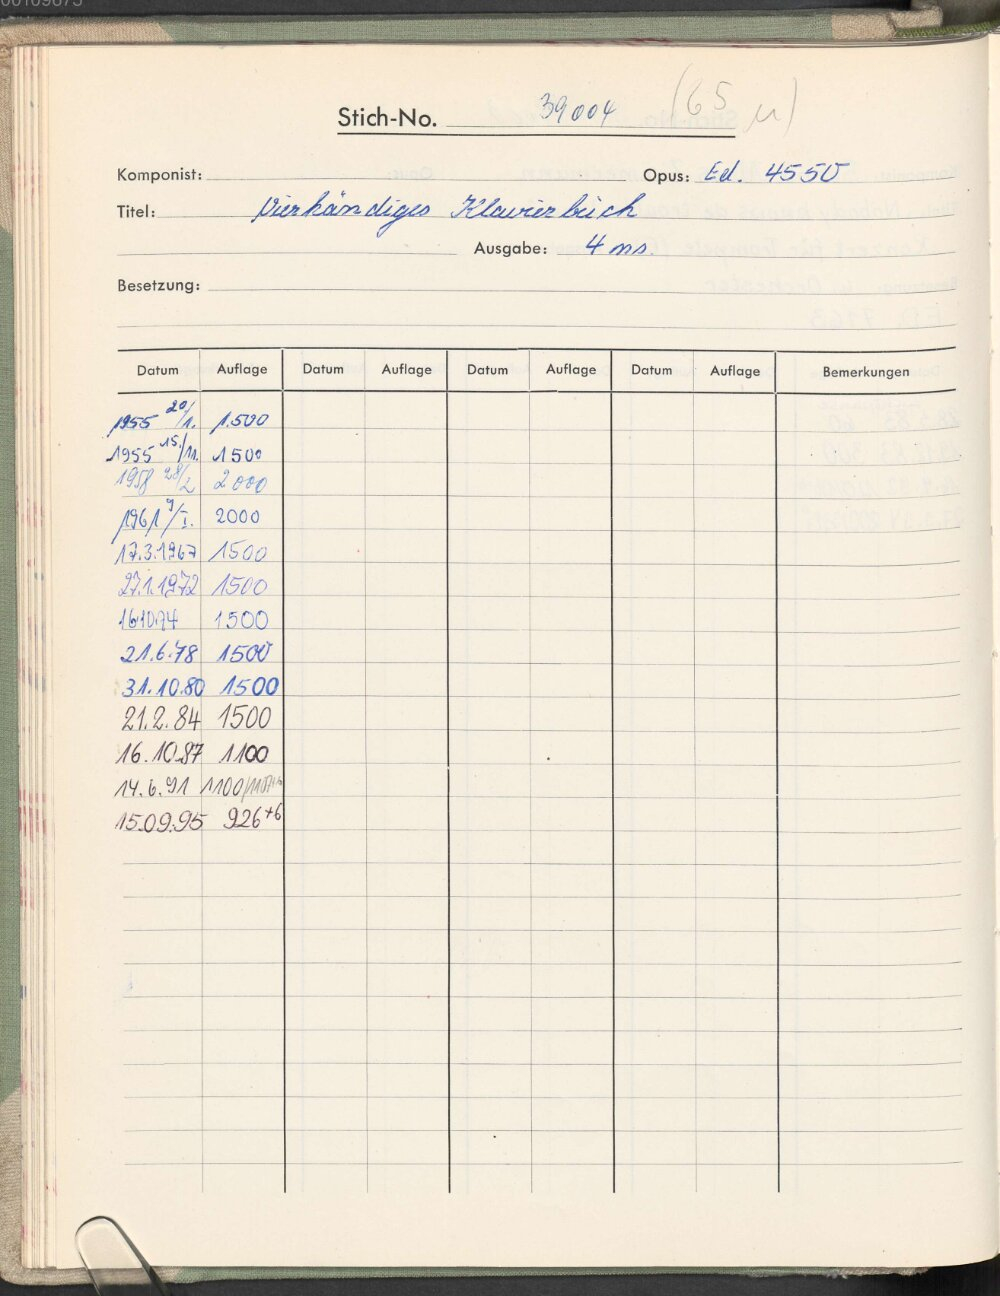 Stich-No. 39004 (65
Komponist: Opus: Ed. 4550
Titel: Vierhändiges Klavierbuch
Ausgabe: 4 ms.
Besetzung:
Datum Auflage Datum Auflage Datum Auflage Datum Auflage Bemerkungen
1955 20/1. 1.500
1955 15./11. 1500
1958 28/2 2000
1961 9/I. 2000
17.3.1967 1500
27.1.1972 1500
16.10.74 1500
21.6.78 1500
31.10.80 1500
21.2.84 1500
16.10.87 1100
14.6.91 1100
15.09.95 926+6